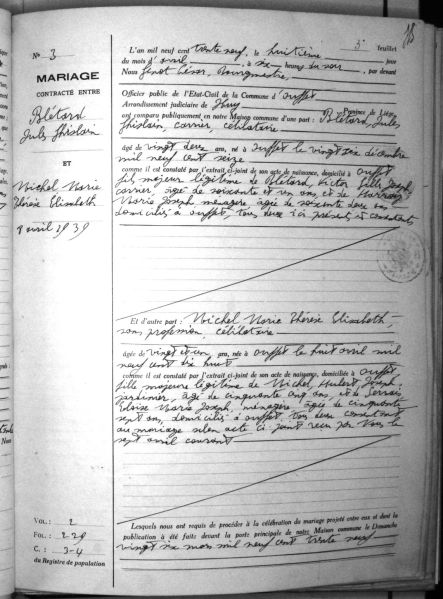 3e feuillet
No 3
MARIAGE
CONTRACTÉ ENTRE
Blétard
Jules Ghislain
ET
Michel Marie
Thérèse Elisabeth
8 avril 1939
L'an mil neuf cent trente neuf, le huitième jour
du mois d'avril à six heures du soir, par devant
Nous César, Bourgmestre,
Officier public de l'Etat-Civil de la Commune d'Ouffet
Arrondissement judiciaire de Huy Province de Liége
ont comparu publiquement en notre Maison commune d'une part : Blétard, Jules
Ghislain, carrier, célibataire
âgé de vingt deux ans, né à Ouffet le vingt six décembre
mil neuf cent seize
comme il est constaté par l'extrait ci-joint de son acte de naissance, domicilié à Ouffet
fils majeur légitime de Blétard, Victor Joseph,
carrier, âgé de soixante et un ans, et de
Marie Joseph ménagère âgée de soixante deux ans
domiciliés à Ouffet, tous deux ici présents et consentants
Et d'autre part : Michel Marie Thérèse Elisabeth,
sans profession, célibataire
âgée de vingt et un ans, née à Ouffet le huit avril mil
neuf cent dix huit
comme il est constaté par l'extrait ci-joint de son acte de naissance, domiciliée à Ouffet
fille majeure légitime de Michel Hubert Joseph,
jardinier, âgé de cinquante cinq ans, et de
Marie Joseph, ménagère, âgée de cinquante
sept ans, domiciliés à Ouffet, tous deux consentant
au mariage selon acte ci-joint reçu par Nous le
sept avril courant
Lesquels nous ont requis de procéder à la célébration du mariage projeté entre eux et dont la
publication a été faite devant la porte principale de notre Maison commune le Dimanche
vingt six mars mil neuf cent trente neuf
VOL : 2
FOL : 229
C. : 3-4
du Registre de population